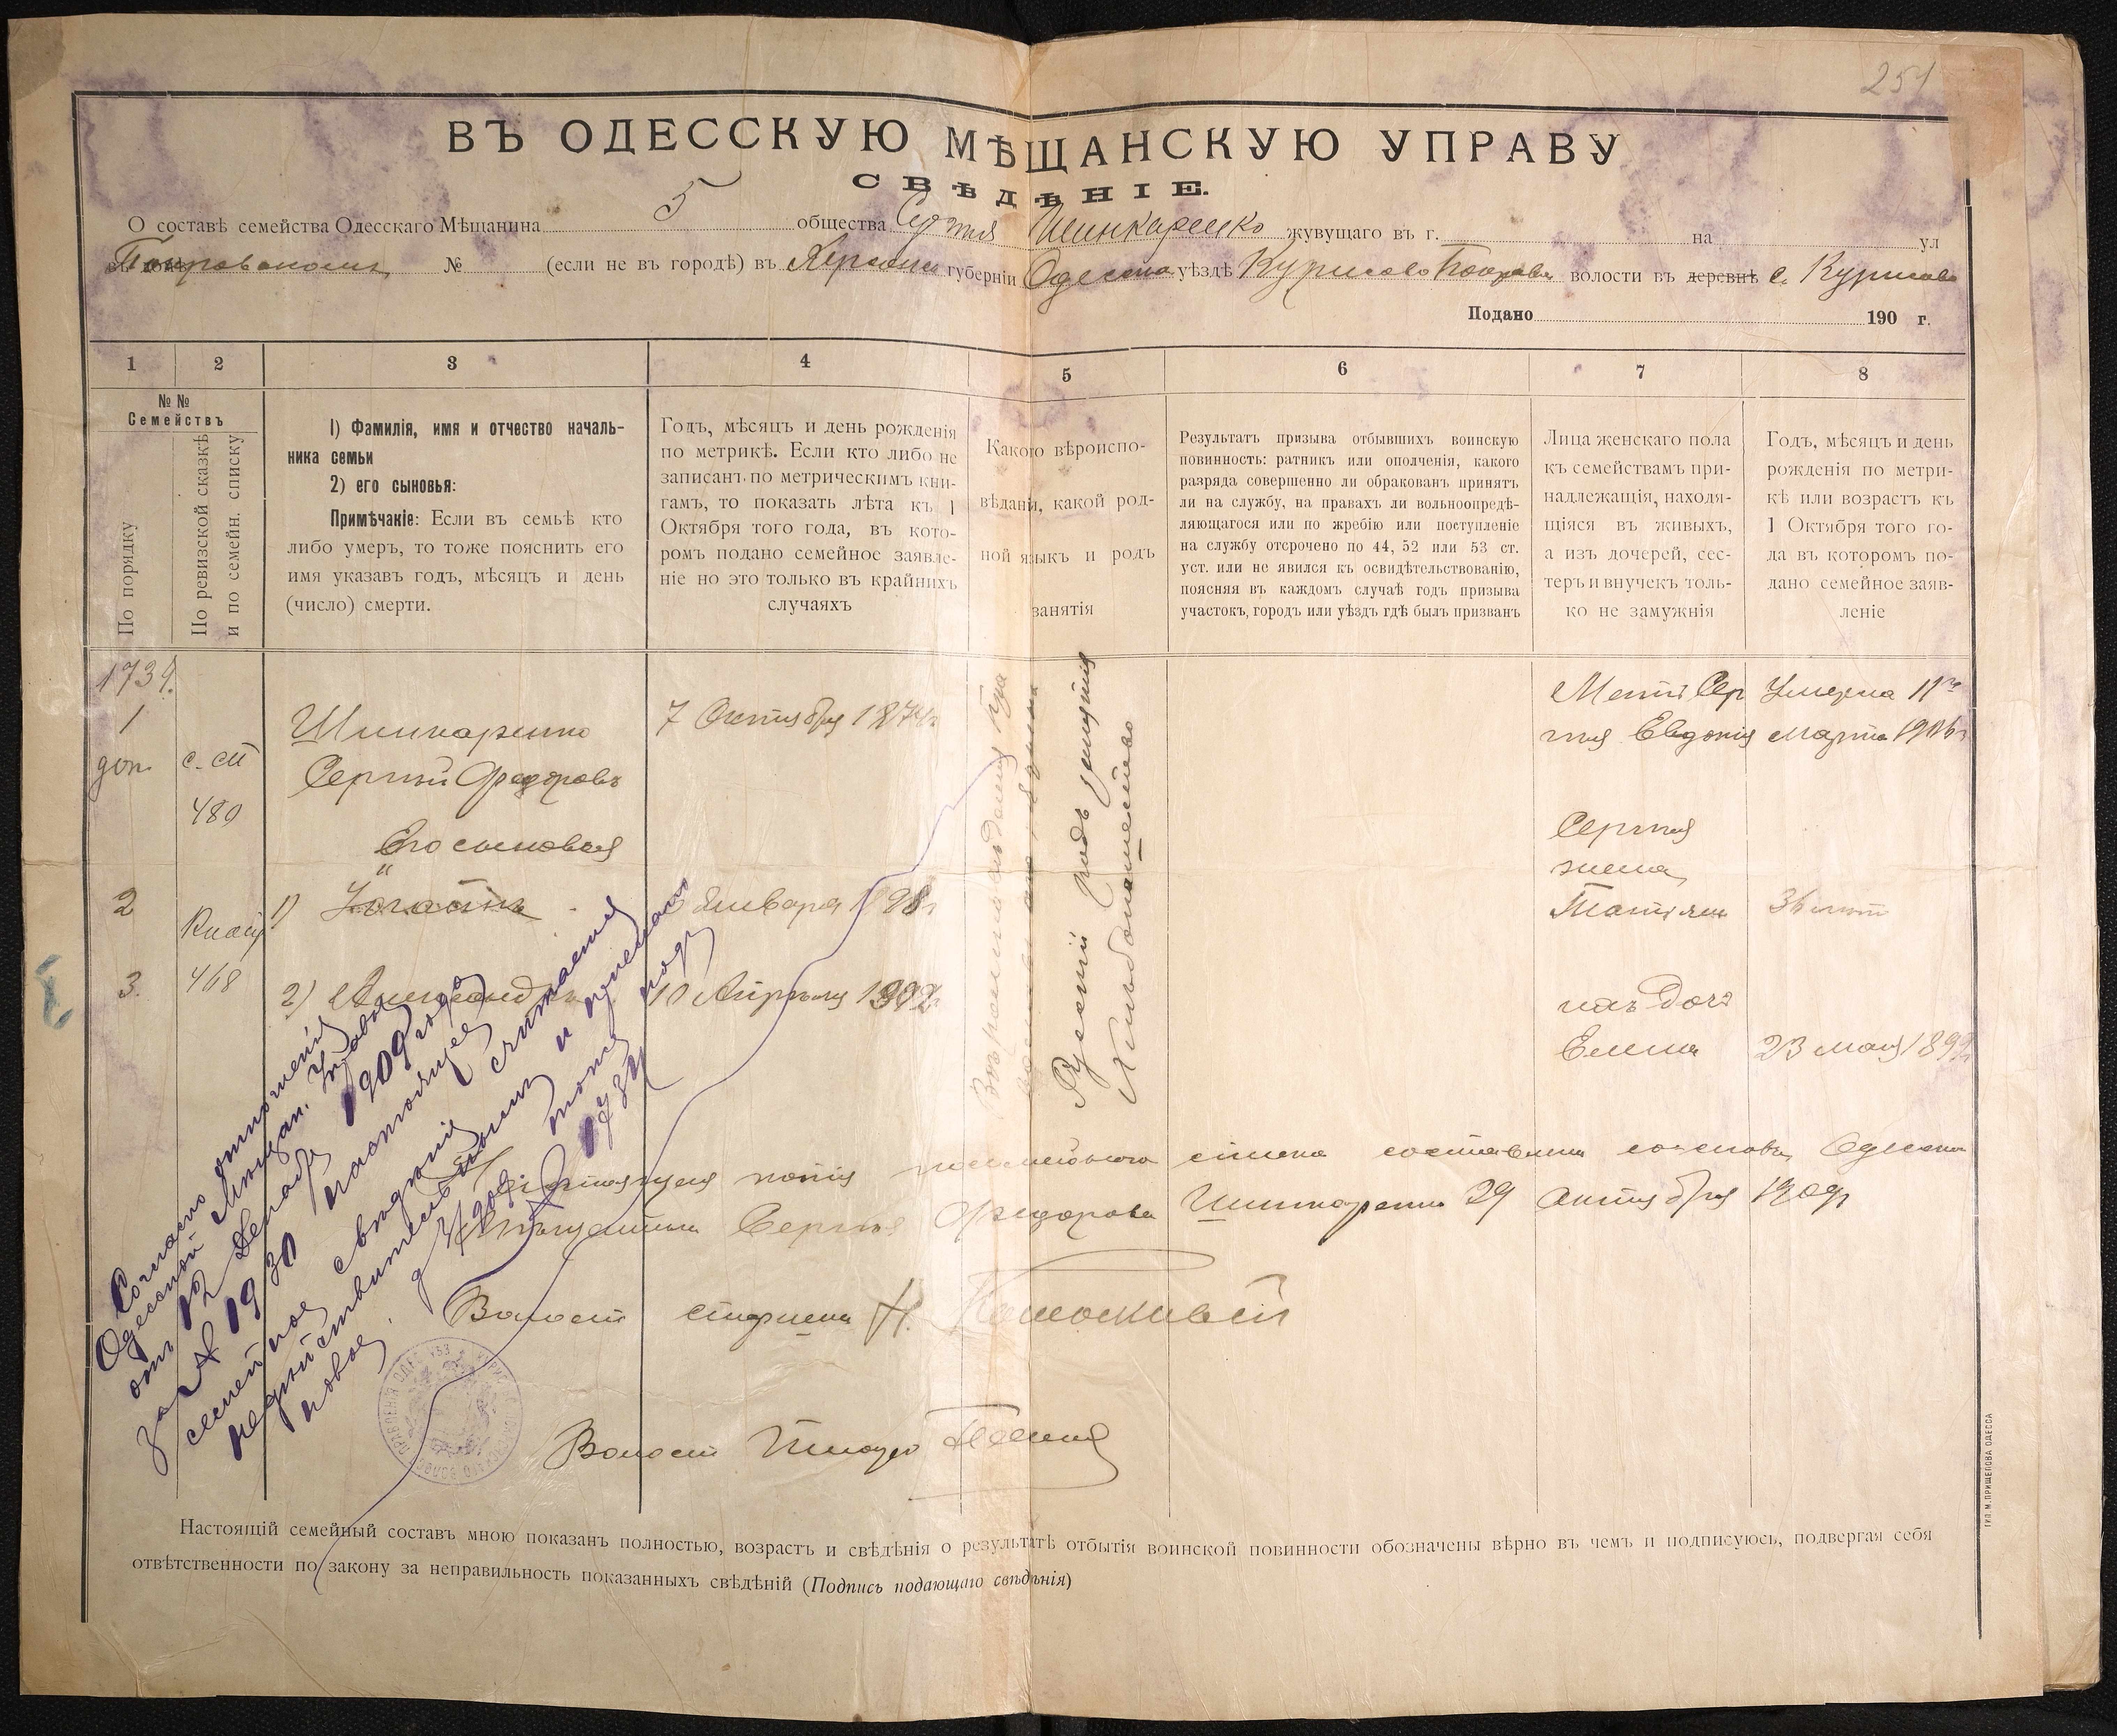 251
ВЪ ОДЕССКУЮ МѢЩАНСКУЮ УПРАВУ
СВѢДѢНІЕ.
О составѣ семейства Одесскаго Мѣщанина 5 общества Сергѣя Шинкаренко жувущаго въ г. на ул
Покровскомъ № (если не въ городѣ) въ Херсонск губерніи Одесском уѣздѣ Курисово Покровск волости въ деревнѣ с. Курисово
Подано 190 г.
1 2 3 4 5 6 7 8
№ №
Семействъ
По порядку
По ревизской сказкѣ
и по семейн. списку
1) Фамилія, имя и отчество началь-
ника семьи
2) его сыновья:
Примѣчакіе: Если въ семьѣ кто
либо умеръ, то тоже пояснить его
имя указавъ годъ, мѣсяцъ и день
(число) смерти.
Годъ, мѣсяцъ и день рожденія
по метрикѣ. Если кто либо не
записанъ по метрическимъ кни-
гамъ, то показать лѣта къ 1
Октября того года, въ кото-
ромъ подано семейное заявле-
ніе но это только въ крайнихъ
случаяхъ
Какого вѣроиспо-
вѣданія, какой род-
ной языкъ и родъ
занятія
Результатъ призыва отбывшихъ воинскую
повинность: ратникъ или ополченія, какого
разряда совершенно ли обракованъ принятъ
ли на службу, на правахъ ли вольноопредѣ-
ляющагося или по жребію или поступленіе
на службу отсрочено по 44, 52 или 53 ст.
уст. или не явился къ освидѣтельствованію,
поясняя въ каждомъ случаѣ годъ призыва
участокъ, городъ или уѣздъ гдѣ былъ призванъ
Лица женскаго пола
къ семействамъ при-
надлежащія, находя-
щіяся въ живыхъ,
а изъ дочерей, сес-
теръ и внучекъ толь-
ко не замужнія
Годъ, мѣсяцъ и день
рожденія по метри-
кѣ или возрастъ къ
1 Октября того го-
да въ котором по-
дано семейное заяв-
леніе
1734.
1
доп.
с. сп
480
Шинкаренко
Сергѣй Федоровъ
7 Октября 1874г
Его сыновья
2
1) Игнатій
Января 1898г
468
3.
2) Александръ
10 Апрѣля 1902г
Русскій родъ занятія
Хлѣбопашество
Мать Сер
гѣя Евдокія
Умерла 11го
марта 1906г
Сергѣя
жена
Татіяна
36 лѣтъ
ихъ дочь
Елена
23 мая 1899г
Настоящая копія посемейного списка составлена со словъ Одесскаго
Мѣщанина Сергѣя Федорова Шинкаренко 29 Октября 1909г
Волост старшина
Волост Писарь
Согласно отношенія
Одесской Мѣщан. Управы
отъ 12 Декабря 1909 года
за № 1930 настоящее
семейное свѣдѣніе считается
недѣйствительнымъ и прислано
новое. 1909 тотъ подъ
1734
Настоящій семейный составъ мною показанъ полностью, возрастъ и свѣдѣнія о результатѣ отбытія воинской повинности обозначены вѣрно въ чемъ и подписуюсь, подвергая себя
отвѣтственности по закону за неправильность показанныхъ свѣдѣній (Подпись подающаго свѣдѣнія)
ТИП. М. ПРИЩЕПОВА ОДЕССА